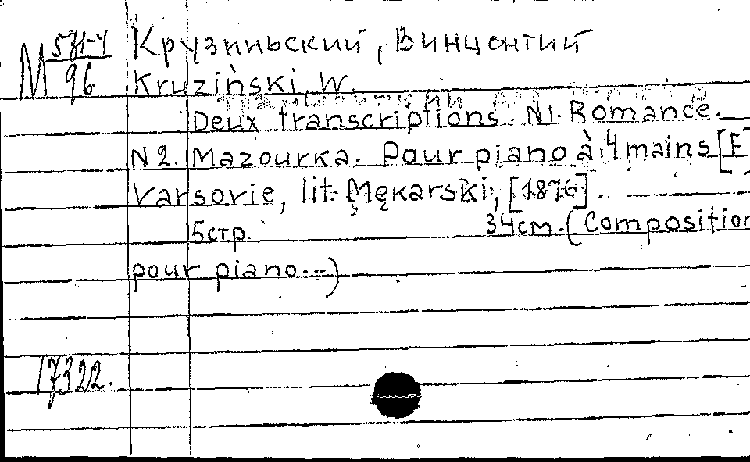 М 571-4/96
Крузиньский, Винцентий
Kruziński, W.
Deux transcriptions. N1. Romance.
N2. Mazourka. Pour piano à 4 mains [E
Varsovie, lit. Mękarski, [1876].
5стр. 34см. (Composition
pour piano...)
17322.